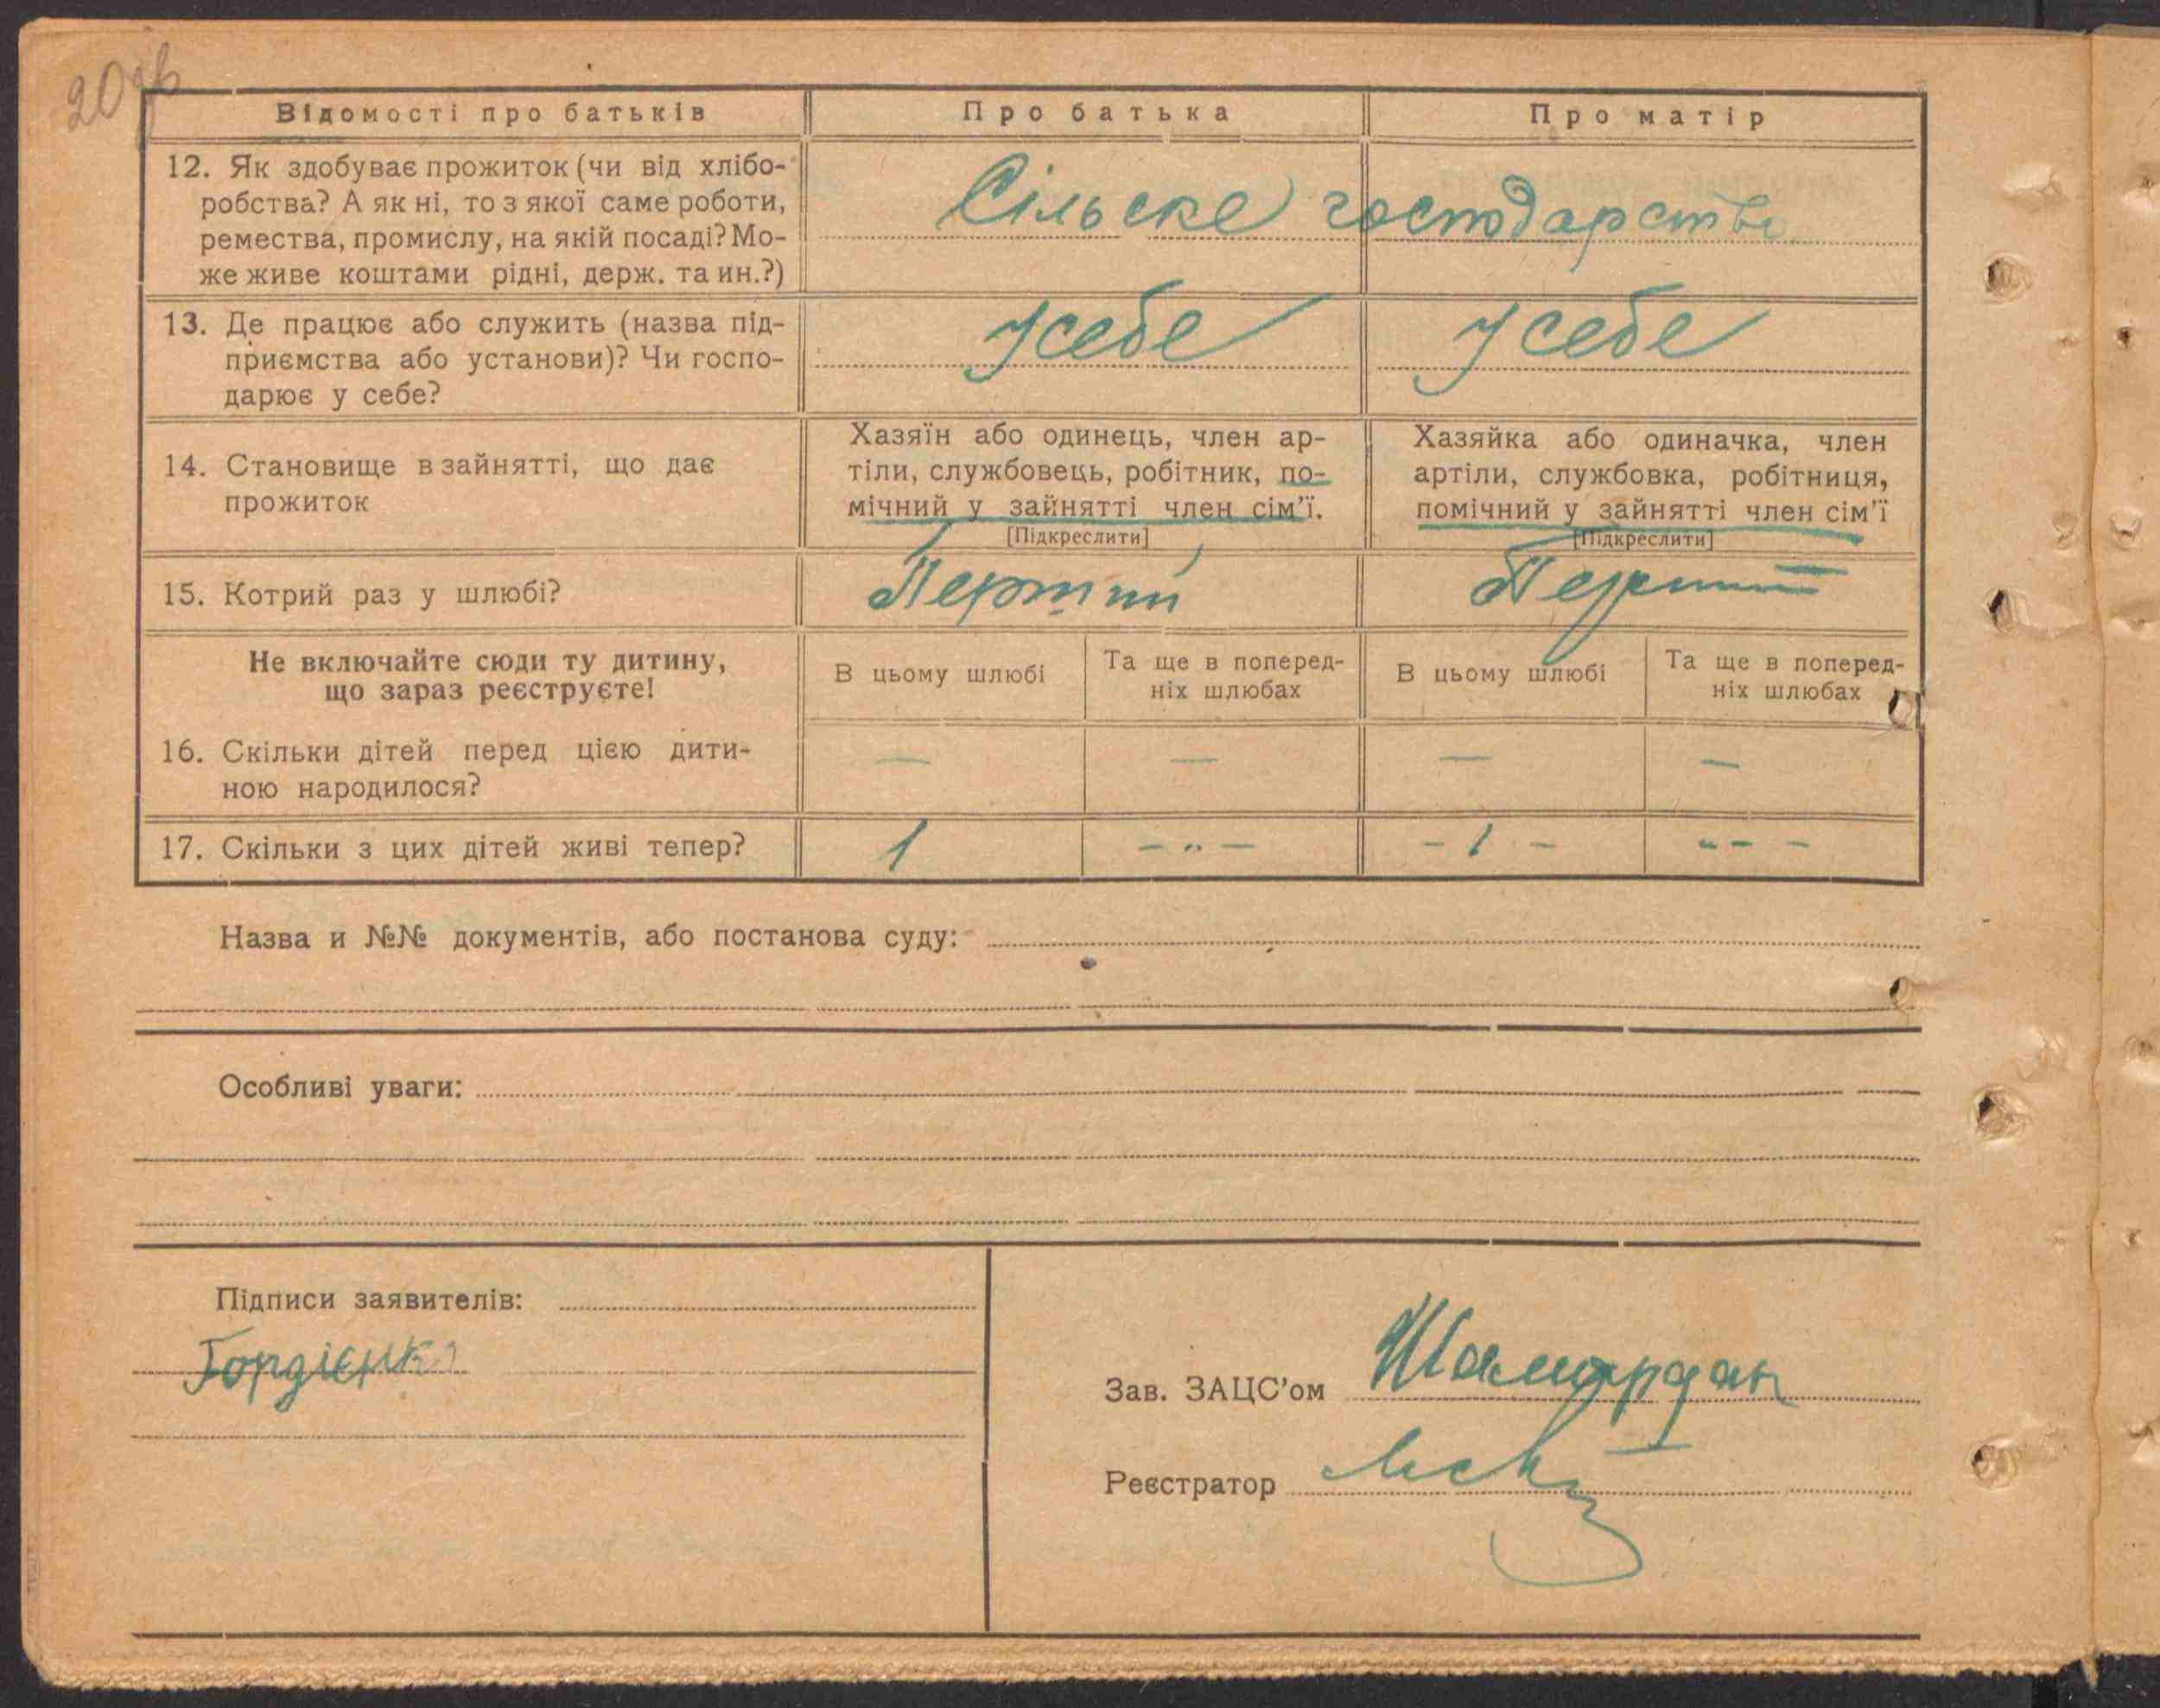 20зв
Відомості про батьків
Про батька
Про матір
12. Як здобуває прожиток (чи від хлібо-
робства? А як ні, то з якої саме роботи,
ремества, промислу, на якій посаді? Мо-
же живе коштами рідні, держ. та ин.?)
Сільске господарство
13. Де працює або служить (назва під-
приємства або установи)? Чи госпо-
дарює у себе?
У себе
У себе
14. Становище в зайнятті, що дає
прожиток
Хазяїн або одинець, член ар-
тіли, службовець, робітник, по-
мічний у зайнятті член сім'ї.
[Підкреслити]
Хазяйка або одиначка, член
артіли, службовка, робітниця,
помічний у зайнятті член сім'ї
[Підкреслити]
15. Котрий раз у шлюбі?
Перший
Перший
Не включайте сюди ту дитину,
що зараз реєструєте!
В цьому шлюбі
Та ще в поперед-
ніх шлюбах
В цьому шлюбі
Та ще в поперед-
ніх шлюбах
16. Скільки дітей перед цією дити-
ною народилося?
—
—
—
—
17. Скільки з цих дітей живі тепер?
1
— „ —
- 1 -
„ - -
Назва и №№ документів, або постанова суду:
Особливі уваги:
Підписи заявителів:
Гордієнко
Зав. ЗАЦС'ом
Реєстратор